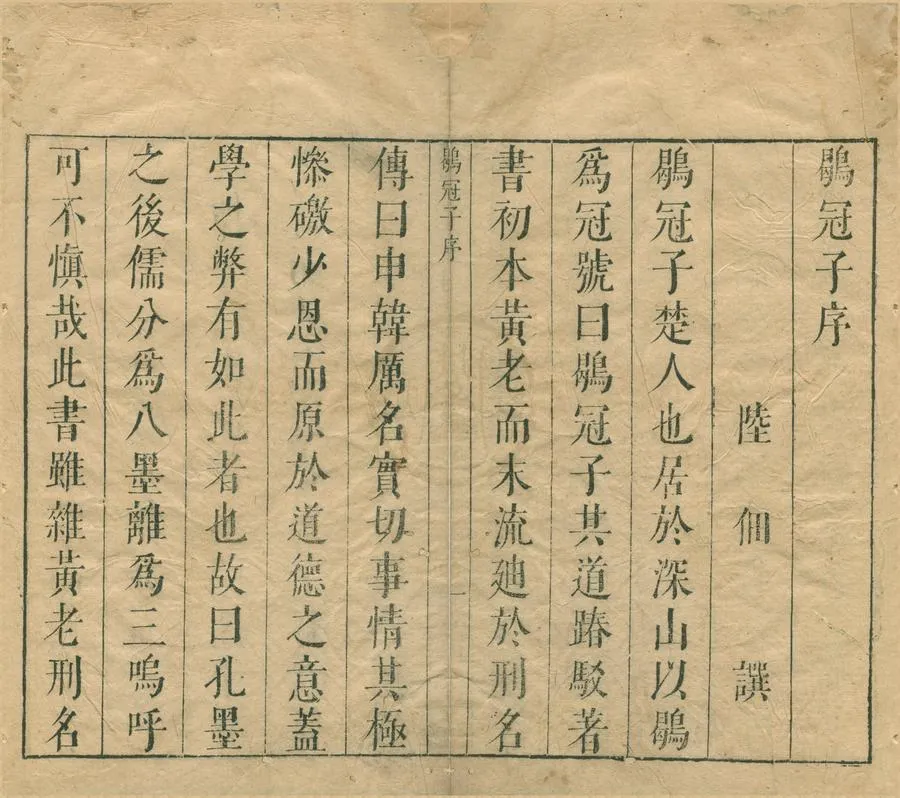 鶡冠子序
陸佃譔
鶡冠子楚人也居於深山以鶡
爲冠號曰鶡冠子其道踳駁著
書初本黃老而末流廸於刑名
鶡冠子序
一
傳曰申韓厲名實切事情其極
慘礉少恩而原於道德之意蓋
學之弊有如此者也故曰孔墨
之後儒分爲八墨離爲三嗚呼
可不慎哉此書雖雜黃老刑名